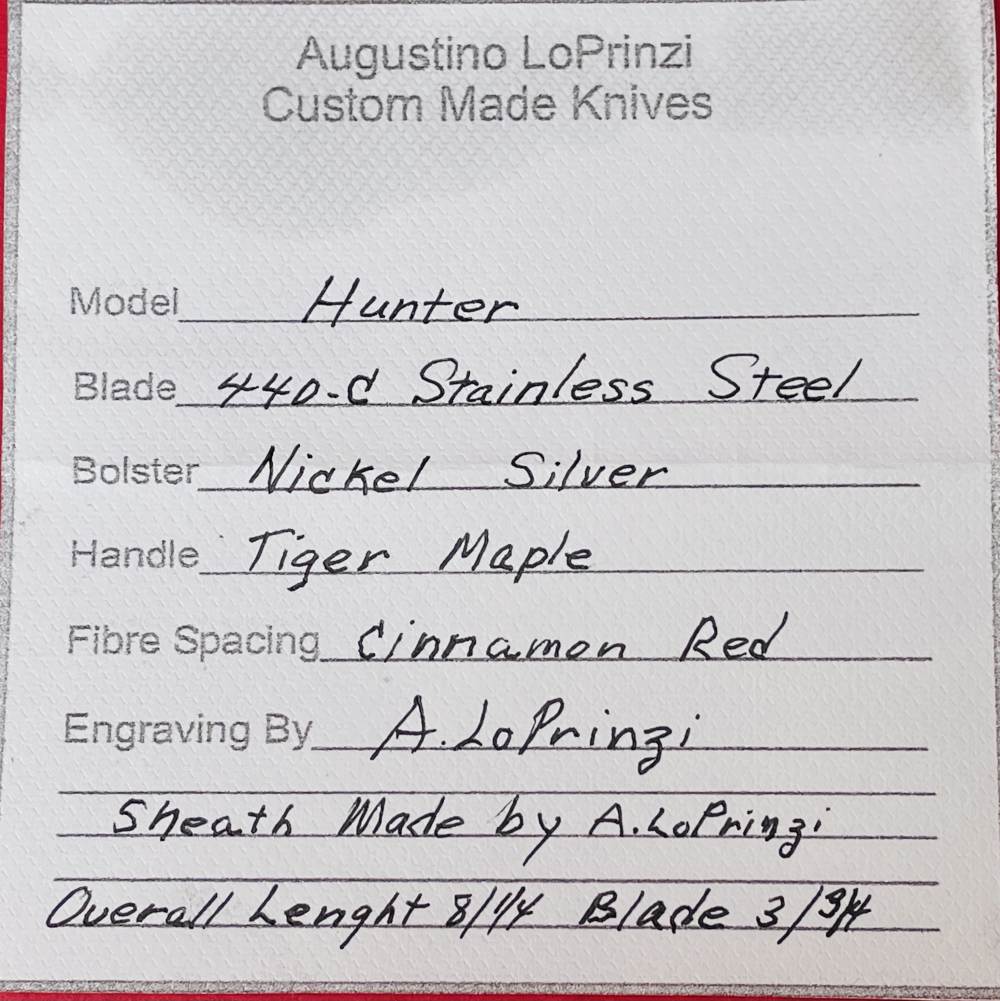 Augustino LoPrinzi
Custom Made Knives
Model Hunter
Blade 440-C Stainless Steel
Bolster Nickel Silver
Handle Tiger Maple
Fibre Spacing Cinnamon Red
Engraving By A. LoPrinzi
Sheath Made by A. LoPrinzi
Overall Lenght 8/1/4 Blade 3/3/4